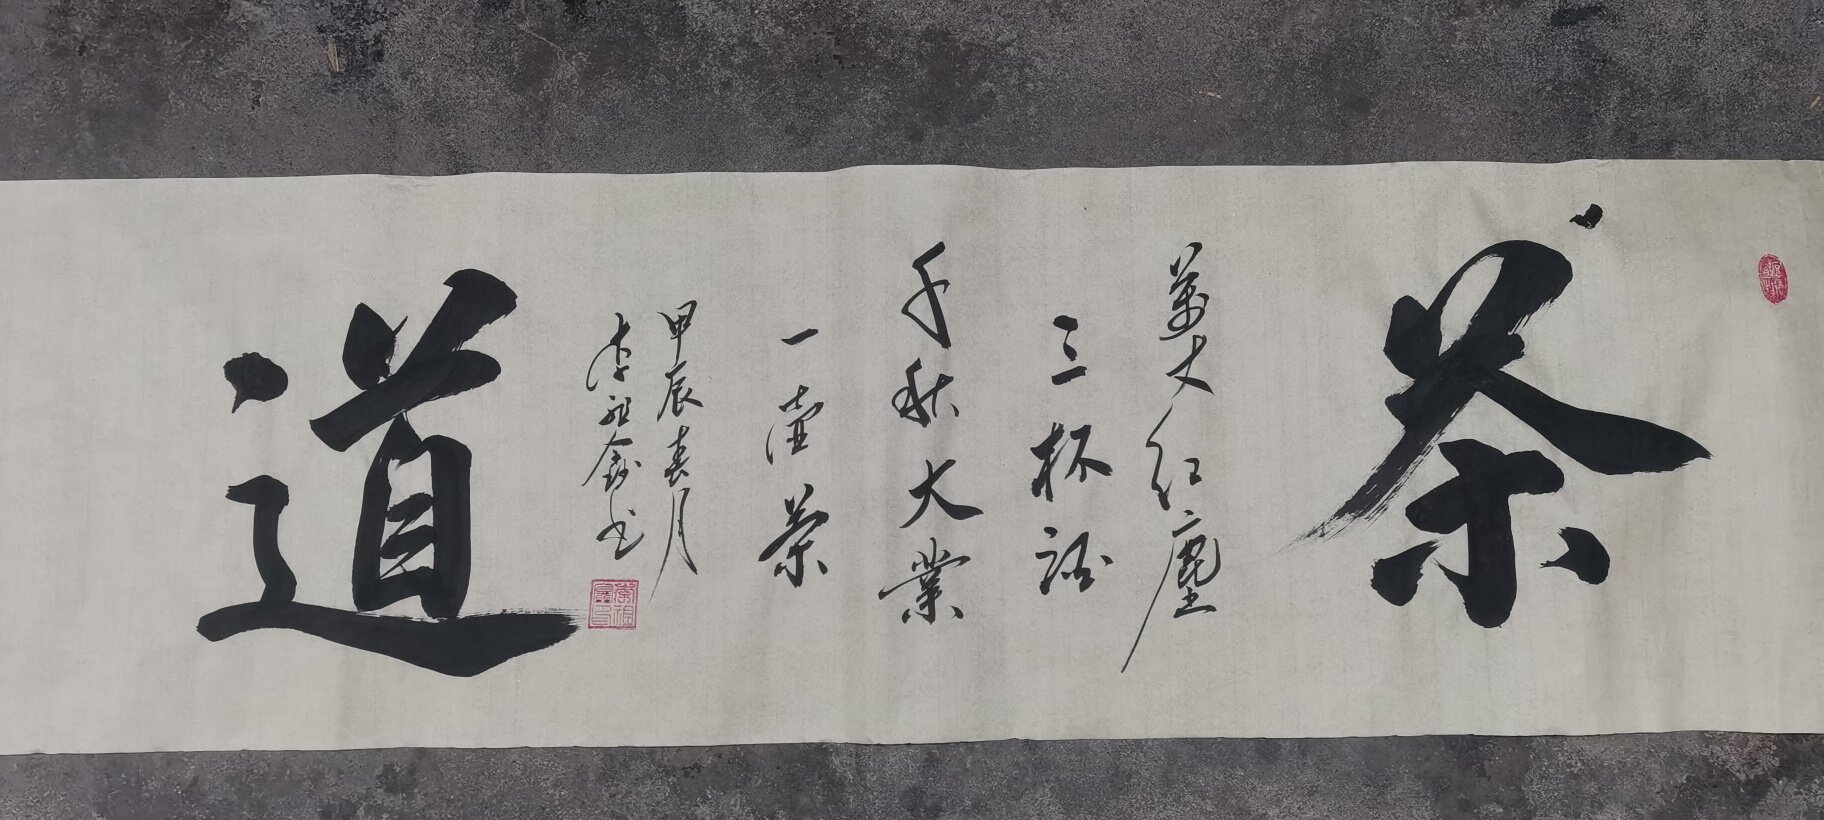 茶
萬丈红塵
三杯酒
千秋大業
一壺茶
甲辰春月
李祖鑫书
道